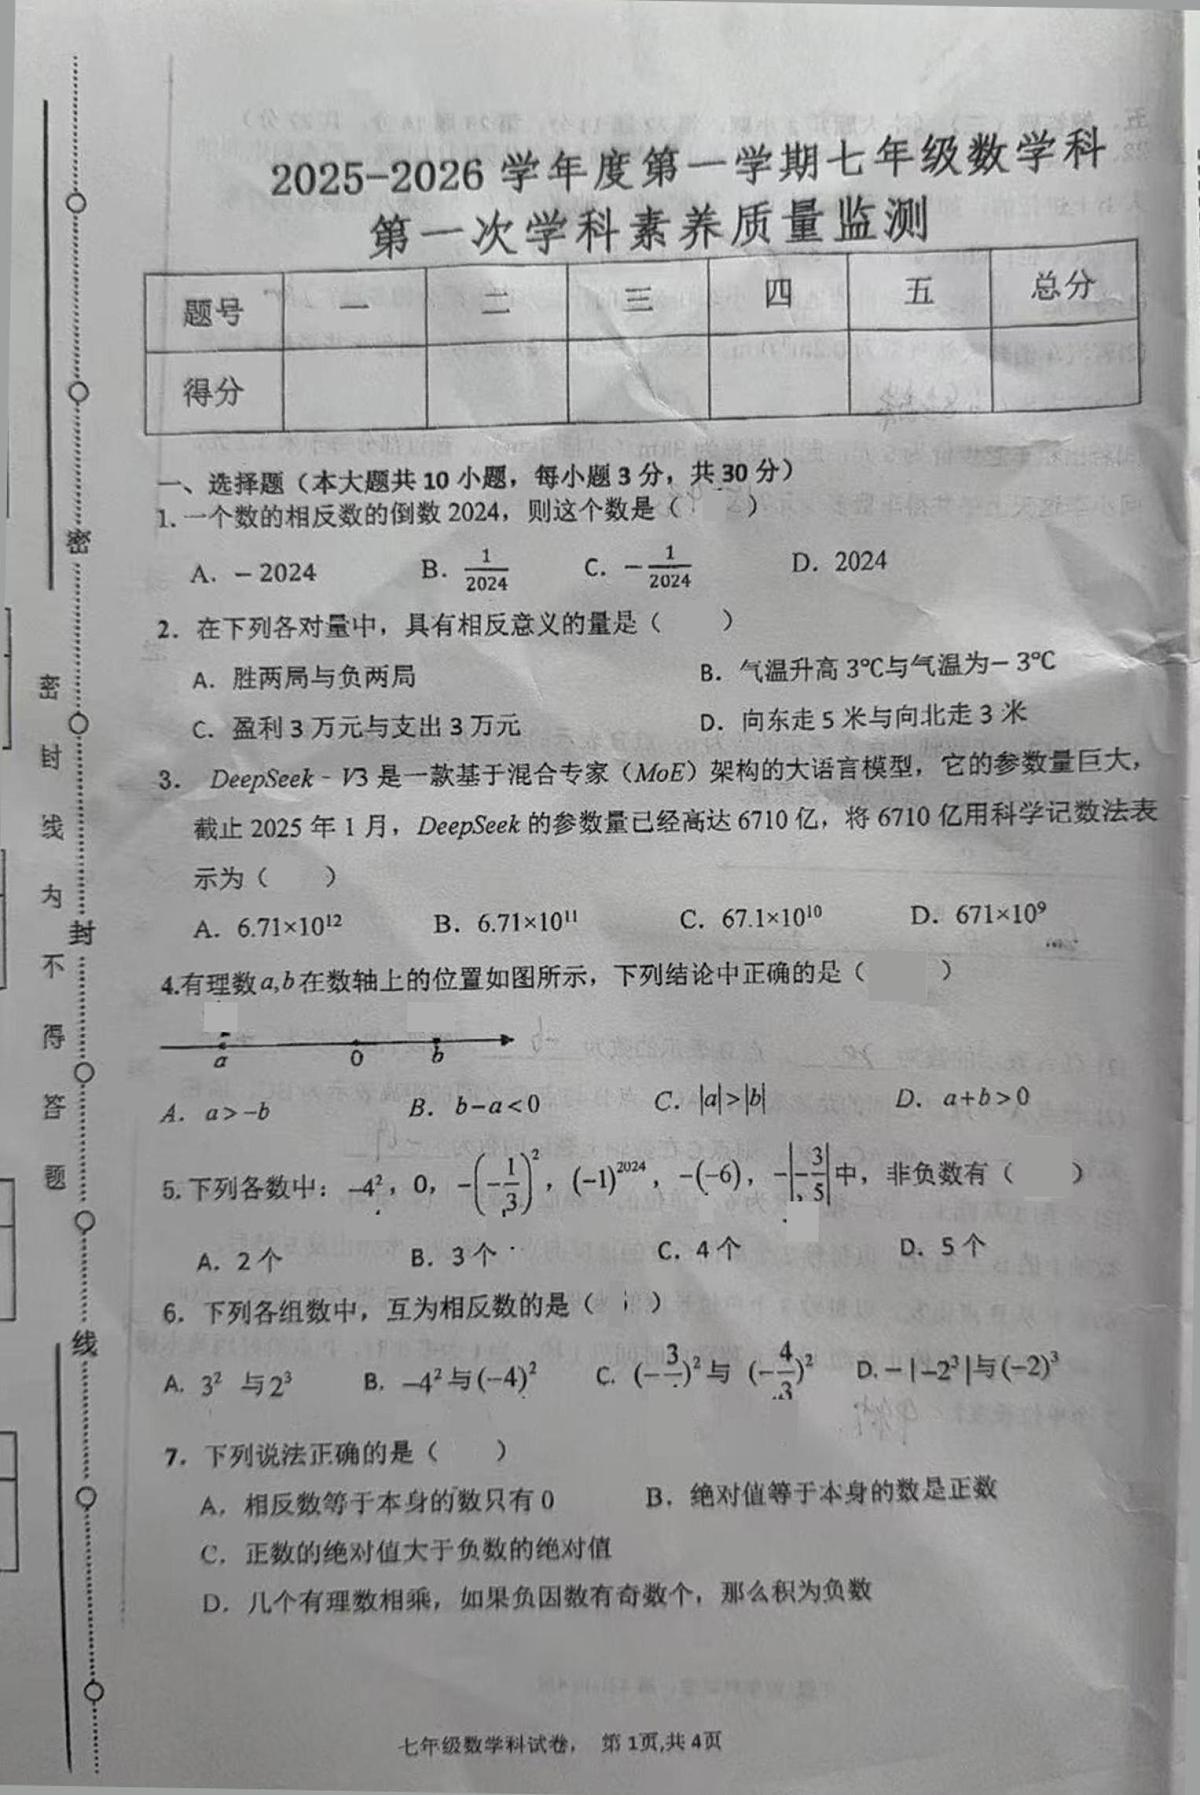 2025-2026 学年度第一学期七年级数学科
第一次学科素养质量监测
题号 一 二 三 四 五 总分
得分
一、选择题（本大题共 10 小题，每小题 3 分，共 30 分）
1. 一个数的相反数的倒数 2024，则这个数是（ ）
A. －2024 B. 1/2024 C. －1/2024 D. 2024
2. 在下列各对量中，具有相反意义的量是（ ）
A. 胜两局与负两局 B. 气温升高 3℃与气温为－3℃
C. 盈利 3 万元与支出 3 万元 D. 向东走 5 米与向北走 3 米
3. DeepSeek - V3 是一款基于混合专家（MoE）架构的大语言模型，它的参数量巨大，
截止 2025 年 1 月，DeepSeek 的参数量已经高达 6710 亿，将 6710 亿用科学记数法表
示为（ ）
A. 6.71×10¹² B. 6.71×10¹¹ C. 67.1×10¹⁰ D. 671×10⁹
4.有理数 a,b 在数轴上的位置如图所示，下列结论中正确的是（ ）
a 0 b
A. a>-b B. b-a<0 C. |a|>|b| D. a+b>0
5. 下列各数中：-4²，0，-(-1/3)²，(-1)²⁰²⁴，-(-6)，-|-3/5|中，非负数有（ ）
A. 2 个 B. 3 个 C. 4 个 D. 5 个
6. 下列各组数中，互为相反数的是（ ）
A. 3² 与 2³ B. -4² 与 (-4)² C. (-3/4)² 与 (-4/3)² D. -|-2³| 与 (-2)³
7. 下列说法正确的是（ ）
A. 相反数等于本身的数只有 0 B. 绝对值等于本身的数是正数
C. 正数的绝对值大于负数的绝对值
D. 几个有理数相乘，如果负因数有奇数个，那么积为负数
七年级数学科试卷， 第 1页,共 4页
密
封
线
密
封
线
内
不
得
答
题